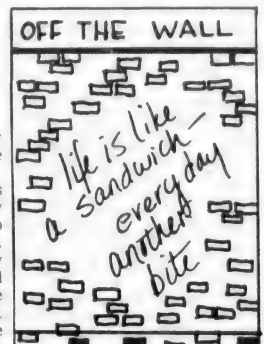 OFF THE WALL
life is like
a sandwich –
every day
another
bite